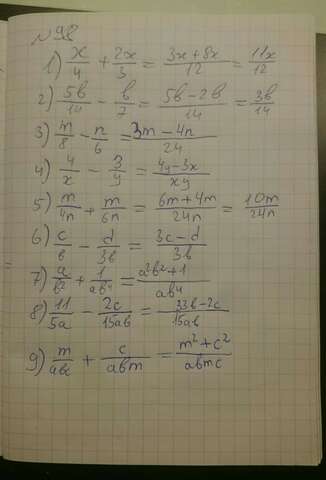 №98
1) x/4 + 2x/3 = 3x+8x/12 = 11x/12
2) 5b/14 - b/7 = 5b-2b/14 = 3b/14
3) m/8 - n/6 = 3m-4n/24
4) 4/x - 3/y = 4y-3x/xy
5) m/4n + m/6n = 6m+4m/24n = 10m/24n
6) c/b - d/3b = 3c-d/3b
7) a/b² + 1/ab⁴ = a²b²+1/ab⁴
8) 11/5a - 2c/15ab = 33b-2c/15ab
9) m/abc + c/abm = m²+c²/abmc